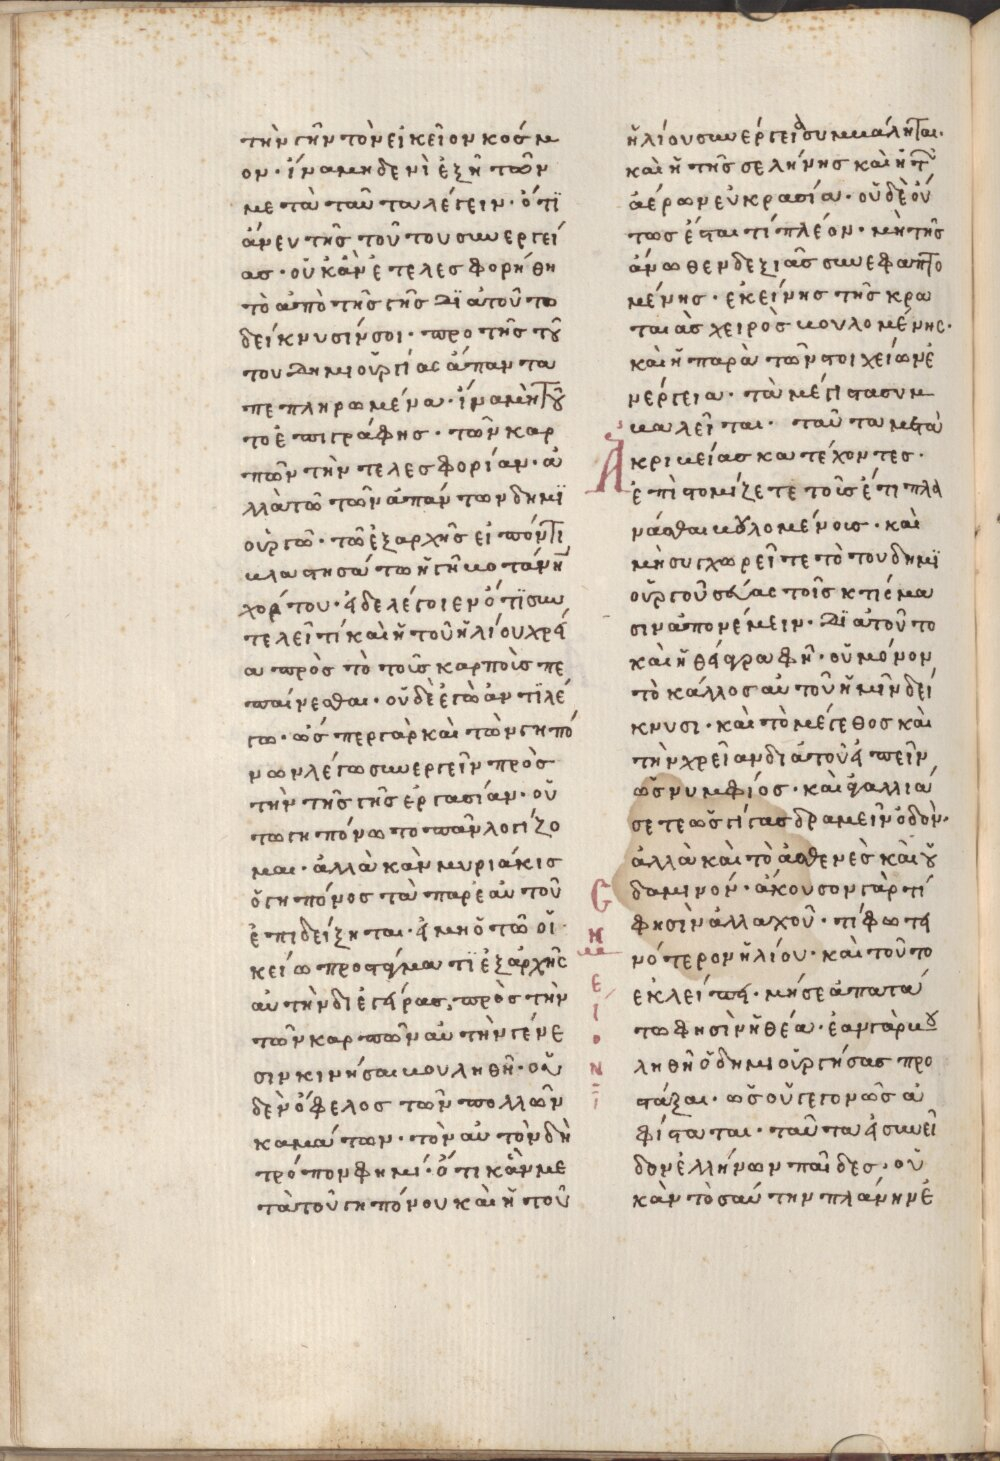 τὴν γῆν τὸν εἰκεῖον κόσμ
ον· ἵνα μηδενὶ ἐξῇ τῶν
μετὰ ταῦτα λέγειν· ὅτι
ἄνευ τῆς τούτου συνεργεί
ας· οὐκ ἂν ἐτελεσφορήθη
τὸ ἀπὸ τῆς γῆς διὰ τοῦτο
δείκνυσίν σοι· πρὸ τῆς τού
του δημιουργίας ἅπαντα
πεπληρωμένα· ἵνα μὴ τού
τῳ ἐπιγράφῃς· τῶν καρ
πῶν τὴν τελεσφορίαν· ἀ
λλὰ τῶ τῶν ἁπάντων δημι
ουργῶ· τῶ ἐξαρχῆς εἰπόντι
βλαστησάτω ἡ γῆ βοτάνη
χόρτου· εἰ δὲ λέγοιεν ὅτι συν
τελεῖ τὶ καὶ ἡ τοῦ ἡλίου χρεί
α πρὸς τὸ τοῖς καρποῖς πε
παίνεσθαι· οὐδὲ ἐγὼ ἀντιλέ
γω· ὥσπερ γὰρ καὶ τὸν γηπό
νων λέγω συνεργεῖν πρὸς
τὴν τῆς γῆς ἐργασίαν· οὐ
τω γηπόνω τὸ πᾶν λογίζο
μαι· ἀλλὰ κἂν μυριάκις
ὁ γηπόνος τὰ παρ' ἑαυτοῦ
ἐπιδείξηται· εἰ μὴ ὁ τῶ οἰ
κείω προστάγματι ἐξ ἀρχῆς
αὐτὴν διεγείρας, πρὸς τὴν
τῶν καρπῶν αὐτὴν γένε
σιν κινῆσαι βουληθῆ· οὐ
δὲν ὄφελος τῶν πολλῶν
καμάτων· τὸν αὐτὸν δὴ
τρόπον φημί· ὅτι κἂν με
τὰ τοῦ γηπόνου καὶ ἡ τοῦ
ἡλίου συνέργεια συμβάληται·
καὶ ἡ τῆς σελήνης καὶ ἡ τῶν
ἀέρων εὐκρασία· οὐδὲ οὕ
τως ἔσται τὶ πλέον· μὴ τῆς
ἄνωθεν δεξιᾶς συνεφαπτο
μένης· ἐκείνης τῆς κρα
ταιᾶς χειρὸς βουλομένης·
καὶ ἡ παρὰ τῶν στοιχείων ἐ
νέργεια· τὰ μέγιστα συμ
βαλεῖται· ταῦτα μετὰ
ἀκριβείας κατέχοντες·
ἐπιστομίζετε τοῖς ἔτι πλα
νᾶσθαι βουλομένοις· καὶ
μὴ συγχωρεῖτε τὸ τοῦ δημι
ουργοῦ σέβας τοῖς κτίσμα
σιν ἀπονέμειν· διὰ τοῦτο
καὶ ἡ θεία γραφὴ· οὐ μόνον
τὸ κάλλος αὐτοῦ ἡμῖν δεί
κνυσι· καὶ τὸ μέγεθος καὶ
τὴν χρείαν διὰ τοῦ εἰπεῖν
ὡς νυμφίος· καὶ ἀγαλλιά
σεται ὡς γίγας δραμεῖν ὁδὸν·
ἀλλὰ καὶ τὸ ἀσθενὲς καὶ οὐ
δαμινόν· ἄκουσον γὰρ τί
φησὶν ἀλλαχοῦ· τί φωτει
νότερον ἡλίου· καὶ τοῦτο
ἐκλείπει· μή σε ἀπατά
τω φησὶν ἡ θέα· ἐὰν γὰρ βου
ληθῆ ὁ δημιουργήσας προ
στάξαι· ὡς οὐ γεγονὼς ἀ
φίσταται· ταῦτα εἰ συνεῖ
δον ἑλλήνων παῖδες· οὐ
κ ἂν τοσαύτην πλάνην ἐ
σημείον